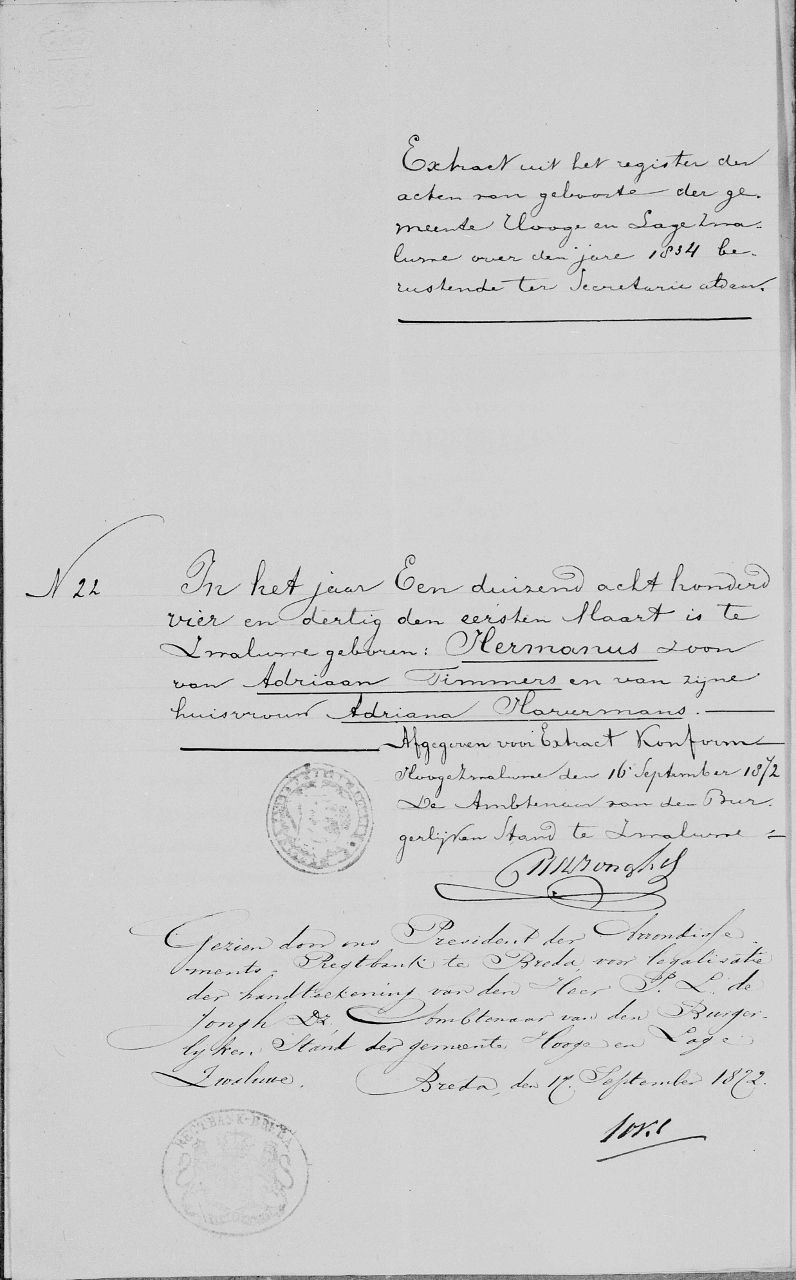 Extract uit het register der
acten van geboorte der ge-
meente Hooge en Lage Zwa-
luwe over den jare 1834 be-
rustende ter Secretarie aldaar.
N 22
In het jaar Een duizend acht honderd
vier en dertig den eersten Maart is te
Zwaluwe geboren: Hermanus zoon
van Adriaan Timmers en van zijne
huisvrouw Adriana Havermans.
Afgegeven voor Extract Konform
Hooge Zwaluwe den 16 September 1872
De Ambtenaar van den Bur-
gerlijken Stand te Zwaluwe
Gezien door ons President der Arrondisse-
ments-Regtbank te Breda voor legalisatie
der handteekening van den Heer P. L. de
Jongh Dz, Ambtenaar van den Burger-
lyken Stand der gemeente Hooge en Lage
Zwaluwe. Breda, den 17 September 1872.
REGTBANK BREDA